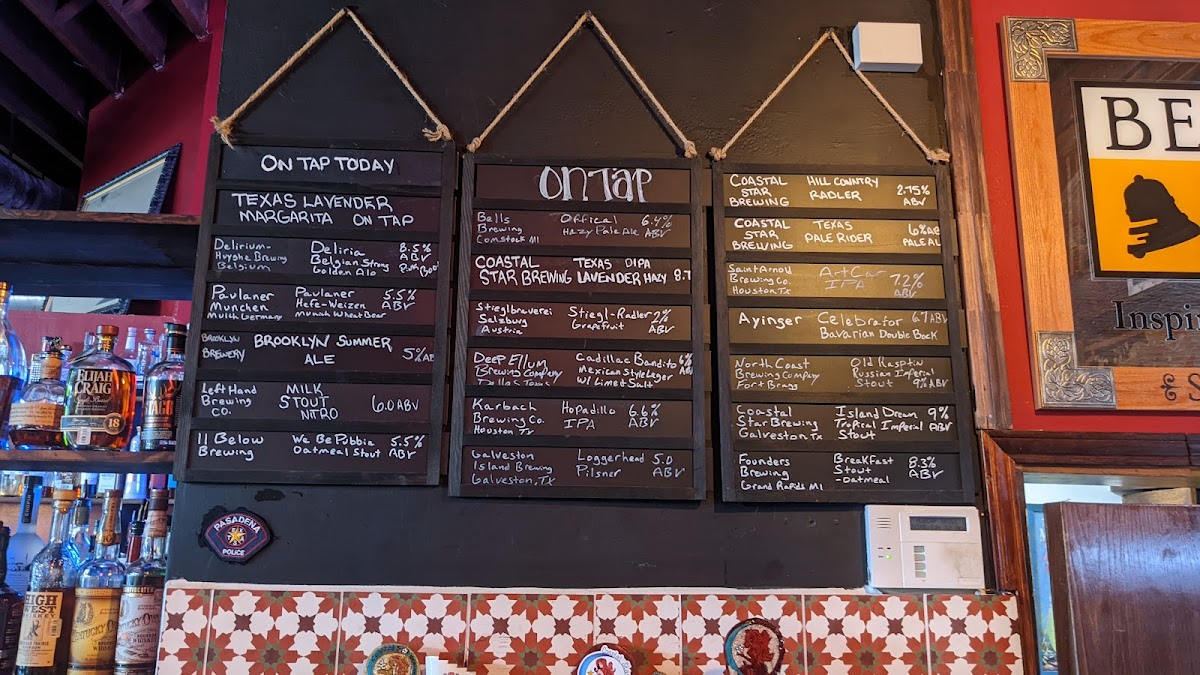 ON TAP TODAY
TEXAS LAVENDER
MARGARITA ON TAP
Delirium-
Huyghe Brewing
Belgium
Deliria
Belgian Strong
Golden Ale
8.5%
ABV
Paulaner
Munchen
Munich Germany
Paulaner
Hefe-Weizen
Munich Wheat Beer
5.5%
ABV
BROOKLYN
BREWERY
BROOKLYN SUMMER
ALE
5% AB
Left Hand
Brewing
CO.
MILK
STOUT
NTRO
6.0 ABV
11 Below
Brewing
We Be Pobbia
Oatmeal Stout
5.5%
ABV
ON TAP
Bells
Brewing
Comstock MI
Offical
Hazy Pale Ale
6.4%
ABV
COASTAL
STAR BREWING
TEXAS DIPA
LAVENDER HAZY 8.7
Stieglbrauerei
Salzburg
Austria
Stiegl-Radler
Grapefruit
2%
ABV
Deep Ellum
Brewing Company
Dallas Texas
Cadillac Bandito
Mexican Style Lager
w/ Lime & Salt
6%
ABV
Karbach
Brewing Co.
Houston TX
Hopadillo
IPA
6.6%
ABV
Galveston
Island Brewing
Galveston, TX
Loggerhead
Pilsner
5.0
ABV
COASTAL
STAR
BREWING
HILL COUNTRY
RADLER
2.75%
ABV
COASTAL
STAR
BREWING
TEXAS
PALE RIDER
6% AB
PALE AL
Saint Arnold
Brewing Co.
Houston TX
Art Car
IPA
7.2%
ABV
Ayinger
Celebrator 6.7 ABV
Bavarian Double Bock
North Coast
Brewing Company
Fort Bragg
Old Rasptin
Russian Imperial
Stout 9% ABV
Coastal
Star Brewing
Galveston TX
Island Dream
Tropical Imperial
Stout
9%
ABV
Founders
Brewing
Grand Rapids MI
Breakfast
Stout
-Oatmeal
8.3%
ABV
BE
Inspi
PASADENA
POLICE
ELIJAH
CRAIG
18
HIGH
WEST